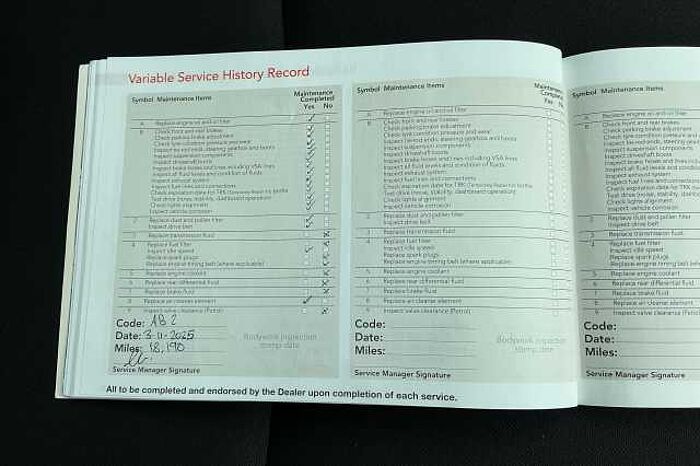 Variable Service History Record
Symbol Maintenance Items
Maintenance
Completed
Yes No
A Replace engine oil and oil filter
B Check front and rear brakes
Check parking brake adjustment
Check tyre condition pressure and wear
Inspect tie rod ends, steering gearbox and boots
Inspect suspension components
Inspect driveshaft boots
Inspect brake hoses and lines including VSA lines
Inspect all fluid levels and condition of fluids
Inspect exhaust system
Inspect fuel lines and connections
Check expiration date for TRK (Temporary Repair Kit) bottle
Test drive (noise, stability, dashboard operations)
Check lights alignment
Inspect vehicle corrosion
2 Replace dust and pollen filter
Inspect drive belt
3 Replace transmission fluid
4 Replace fuel filter
Inspect idle speed
Replace spark plugs
Replace engine timing belt (where applicable)
5 Replace engine coolant
6 Replace rear differential fluid
7 Replace brake fluid
8 Replace air cleaner element
9 Inspect valve clearance (Petrol)
Code: AB 2
Date: 3-11-2025
Miles: 18,190
Service Manager Signature
Bodywork inspection
stamp-date
Symbol Maintenance Items
Maintenance
Completed
Yes No
A Replace engine oil and oil filter
B Check front and rear brakes
Check parking brake adjustment
Check tyre condition pressure and wear
Inspect tie rod ends, steering gearbox and boots
Inspect suspension components
Inspect driveshaft boots
Inspect brake hoses and lines including VSA lines
Inspect all fluid levels and condition of fluids
Inspect exhaust system
Inspect fuel lines and connections
Check expiration date for TRK (Temporary Repair Kit) bottle
Test drive (noise, stability, dashboard operations)
Check lights alignment
Inspect vehicle corrosion
2 Replace dust and pollen filter
Inspect drive belt
3 Replace transmission fluid
4 Replace fuel filter
Inspect idle speed
Replace spark plugs
Replace engine timing belt (where applicable)
5 Replace engine coolant
6 Replace rear differential fluid
7 Replace brake fluid
8 Replace air cleaner element
9 Inspect valve clearance (Petrol)
Code:
Date:
Miles:
Service Manager Signature
Bodywork inspection
stamp-date
All to be completed and endorsed by the Dealer upon completion of each service.
Symbol Maintenance Items
Replace engine oil and oil filter
Check front and rear brakes
Check parking brake adjustment
Check tyre condition pressure
Inspect tie rod ends, steering
Inspect suspension
Inspect driveshaft boots
Inspect brake hoses and lines
Inspect all fluid levels and
Inspect exhaust system
Inspect fuel lines and
Check expiration date for TRK
Test drive (noise, stability,
Check lights alignment
Inspect vehicle corrosion
2 Replace dust and pollen filter
Inspect drive belt
3 Replace transmission fluid
4 Replace fuel filter
Inspect idle speed
Replace spark plugs
Replace engine timing belt
5 Replace engine coolant
6 Replace rear differential fluid
7 Replace brake fluid
8 Replace air cleaner element
9 Inspect valve clearance (Petrol)
Code:
Date:
Miles:
Service Manager Signature